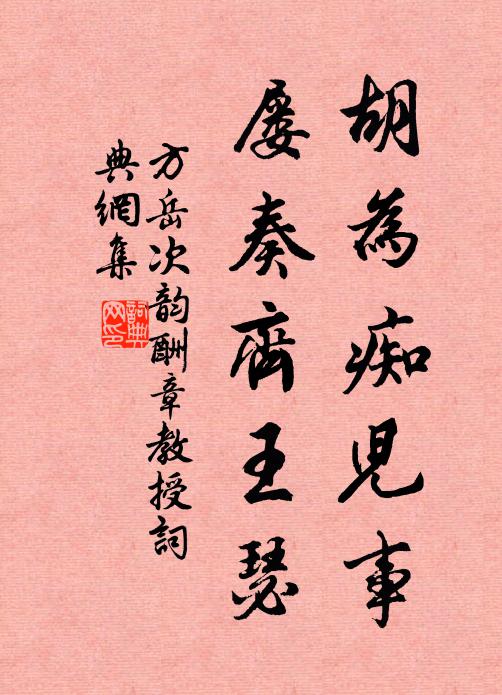 胡為痴兒事
屡奏齊王瑟
方岳次韵酬章教授詞
典網集
詞典网印